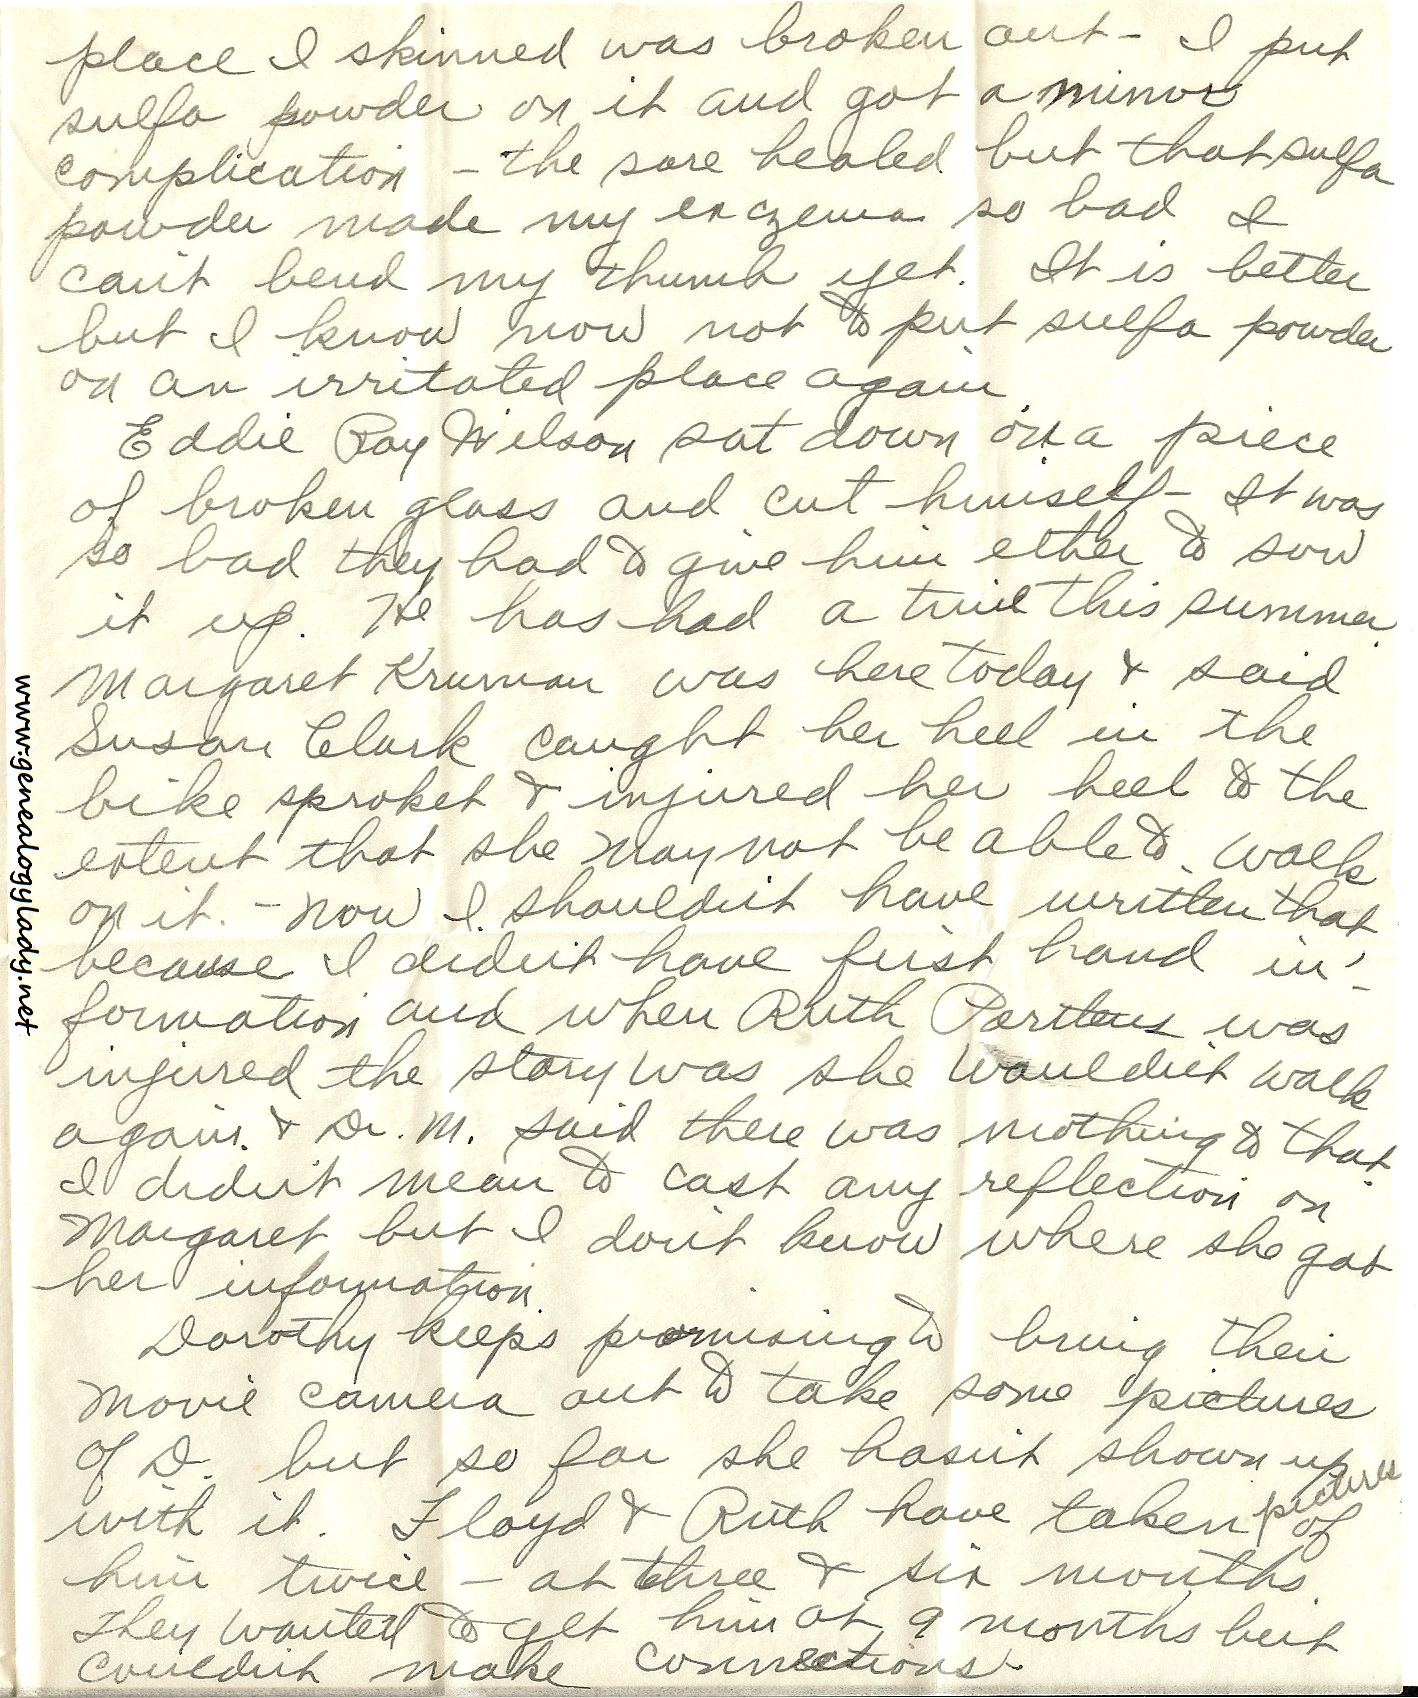 place I skinned was broken out - I put
sulfa powder on it and got a minor
complication - the sore healed but that sulfa
powder made my exczema so bad I
can't bend my thumb yet. It is better
but I know now not to put sulfa powder
on an irritated place again
Eddie Ray Wilson sat down on a piece
of broken glass and cut himself - It was
so bad they had to give him ether to sow
it up. He has had a time this summer.
Margaret Kruman was here today & said
Susan Clark caught her heel in the
bike sproket & injured her heel to the
extent that she may not be able to walk
on it. - Now I shouldn't have written that
because I didn't have first hand in-
formation and when Ruth was
injured the story was she wouldn't walk
again. & Dr. M. said there was nothing to that
I didn't mean to cast any reflection on
Margaret but I don't know where she got
her information.
Dorothy keeps promising to bring their
movie camera out to take some pictures
of D. but so far she hasn't shown up
with it. Floyd & Ruth have taken pictures of
him twice - at three & six months
They wanted to get him at 9 months but
couldn't make connections.
www.genealogylady.net